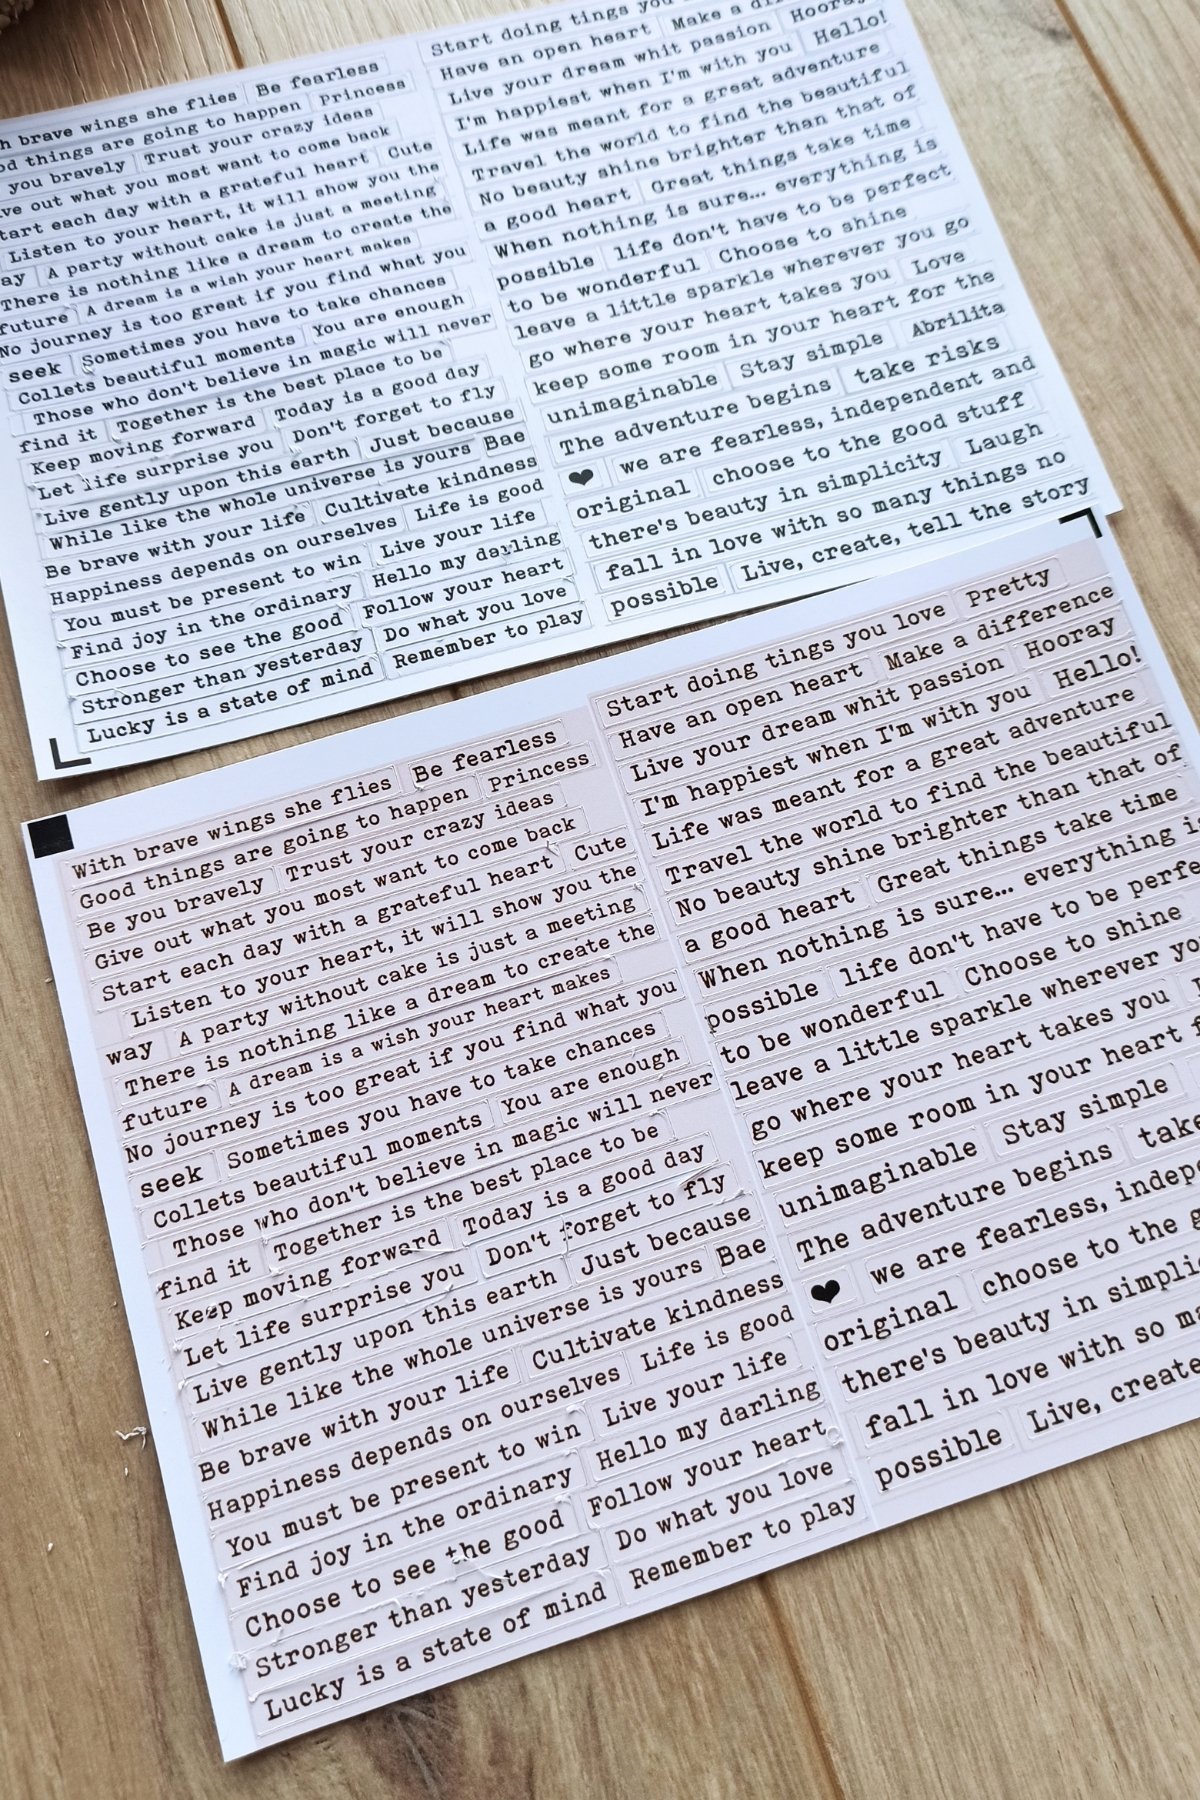 h brave wings she flies Be fearless
od things are going to happen Princess
you bravely Trust your crazy ideas
ve out what you most want to come back
tart each day with a grateful heart Cute
Listen to your heart, it will show you the
ay A party without cake is just a meeting
There is nothing like a dream to create the
future A dream is a wish your heart makes
No journey is too great if you find what you
seek Sometimes you have to take chances
Collets beautiful moments You are enough
Those who don't believe in magic will never
find it Together is the best place to be
Keep moving forward Today is a good day
Let life surprise you Don't forget to fly
Live gently upon this earth Just because
While like the whole universe is yours Bae
Be brave with your life Cultivate kindness
Happiness depends on ourselves Life is good
You must be present to win Live your life
Find joy in the ordinary Hello my darling
Choose to see the good Follow your heart
Stronger than yesterday Do what you love
Lucky is a state of mind Remember to play
Start doing tings you
Have an open heart Make a di
Live your dream whit passion Hooray
I'm happiest when I'm with you Hello!
Life was meant for a great adventure
Travel the world to find the beautiful
No beauty shine brighter than that of
a good heart Great things take time
When nothing is sure... everything is
possible life don't have to be perfect
to be wonderful Choose to shine
leave a little sparkle wherever you go
go where your heart takes you Love
keep some room in your heart for the
unimaginable Stay simple Abrilita
The adventure begins take risks
❤ we are fearless, independent and
original choose to the good stuff
there's beauty in simplicity Laugh
fall in love with so many things no
possible Live, create, tell the story
With brave wings she flies Be fearless
Good things are going to happen Princess
Be you bravely Trust your crazy ideas
Give out what you most want to come back
Start each day with a grateful heart Cute
Listen to your heart, it will show you the
way A party without cake is just a meeting
There is nothing like a dream to create the
future A dream is a wish your heart makes
No journey is too great if you find what you
seek Sometimes you have to take chances
Collets beautiful moments You are enough
Those who don't believe in magic will never
find it Together is the best place to be
Keep moving forward Today is a good day
Let life surprise you Don't forget to fly
Live gently upon this earth Just because
While like the whole universe is yours Bae
Be brave with your life Cultivate kindness
Happiness depends on ourselves Life is good
You must be present to win Live your life
Find joy in the ordinary Hello my darling
Choose to see the good Follow your heart
Stronger than yesterday Do what you love
Lucky is a state of mind Remember to play
Start doing tings you love Pretty
Have an open heart Make a difference
Live your dream whit passion Hooray
I'm happiest when I'm with you Hello!
Life was meant for a great adventure
Travel the world to find the beautiful
No beauty shine brighter than that of
a good heart Great things take time
When nothing is sure... everything is
possible life don't have to be perfe
to be wonderful Choose to shine
leave a little sparkle wherever yo
go where your heart takes you
keep some room in your heart f
unimaginable Stay simple
The adventure begins take
❤ we are fearless, indepe
original choose to the g
there's beauty in simplic
fall in love with so ma
possible Live, create